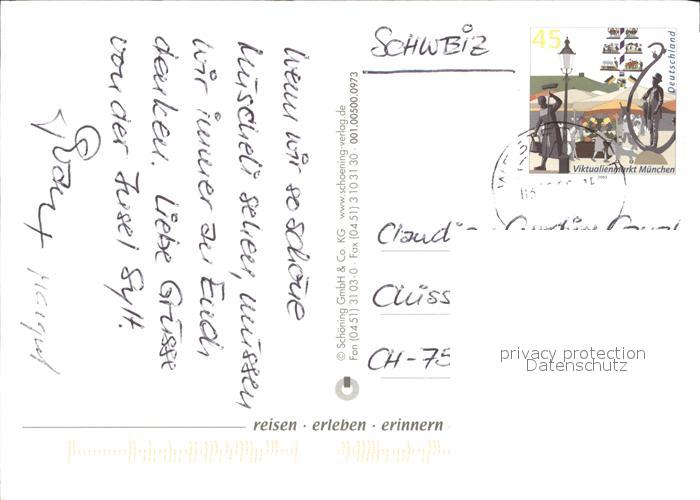 Wenn wir so schöne
Muscheli sehen, müssen
wir immer an Euch
denken. Liebe Grüsse
von der Insel Sylt.
Margrit
© Schöning GmbH & Co. KG · www.schoening-verlag.de
Fon (04 51) 31 03-0 · Fax (04 51) 3 10 31 30 · 001.00500.0973
SCHWEIZ
45
Deutschland
Viktualienmarkt München
2003
Claudi
CH-75
privacy protection
Datenschutz
reisen · erleben · erinnern